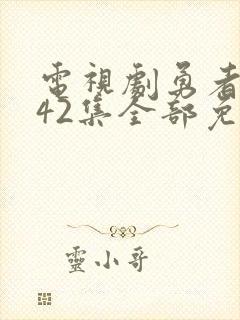 電視劇勇者
42集全部免
靈小哥